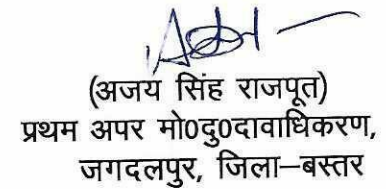 (अजय सिंह राजपूत)
प्रथम अपर मो0दु0दावाधिकरण,
जगदलपुर, जिला–बस्तर